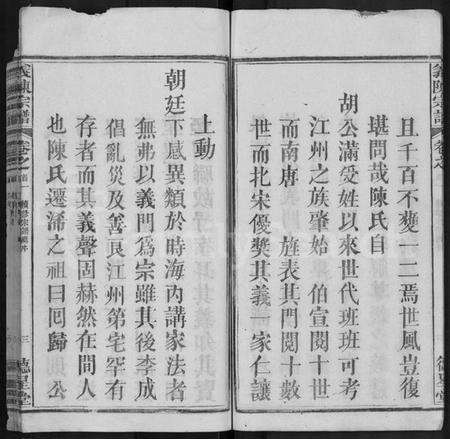 且千百不變一二焉世風豈復
堪問哉陳氏自
胡公滿受姓以來世代班班可考
江州之族肇始 伯宣閱十世
而南唐 旌表其門閱十數
世而北宋優獎其義一家仁讓
上動
朝廷下感異類於時海內講家法者
無弗以義門為宗雖其後李成
倡亂災及善良江州第宅罕有
存者而其義聲固赫然在間人
也陳氏遷浠之祖曰囘歸則公
義陳宗譜
卷之
三
德星堂
義陳宗譜
卷之
德星堂